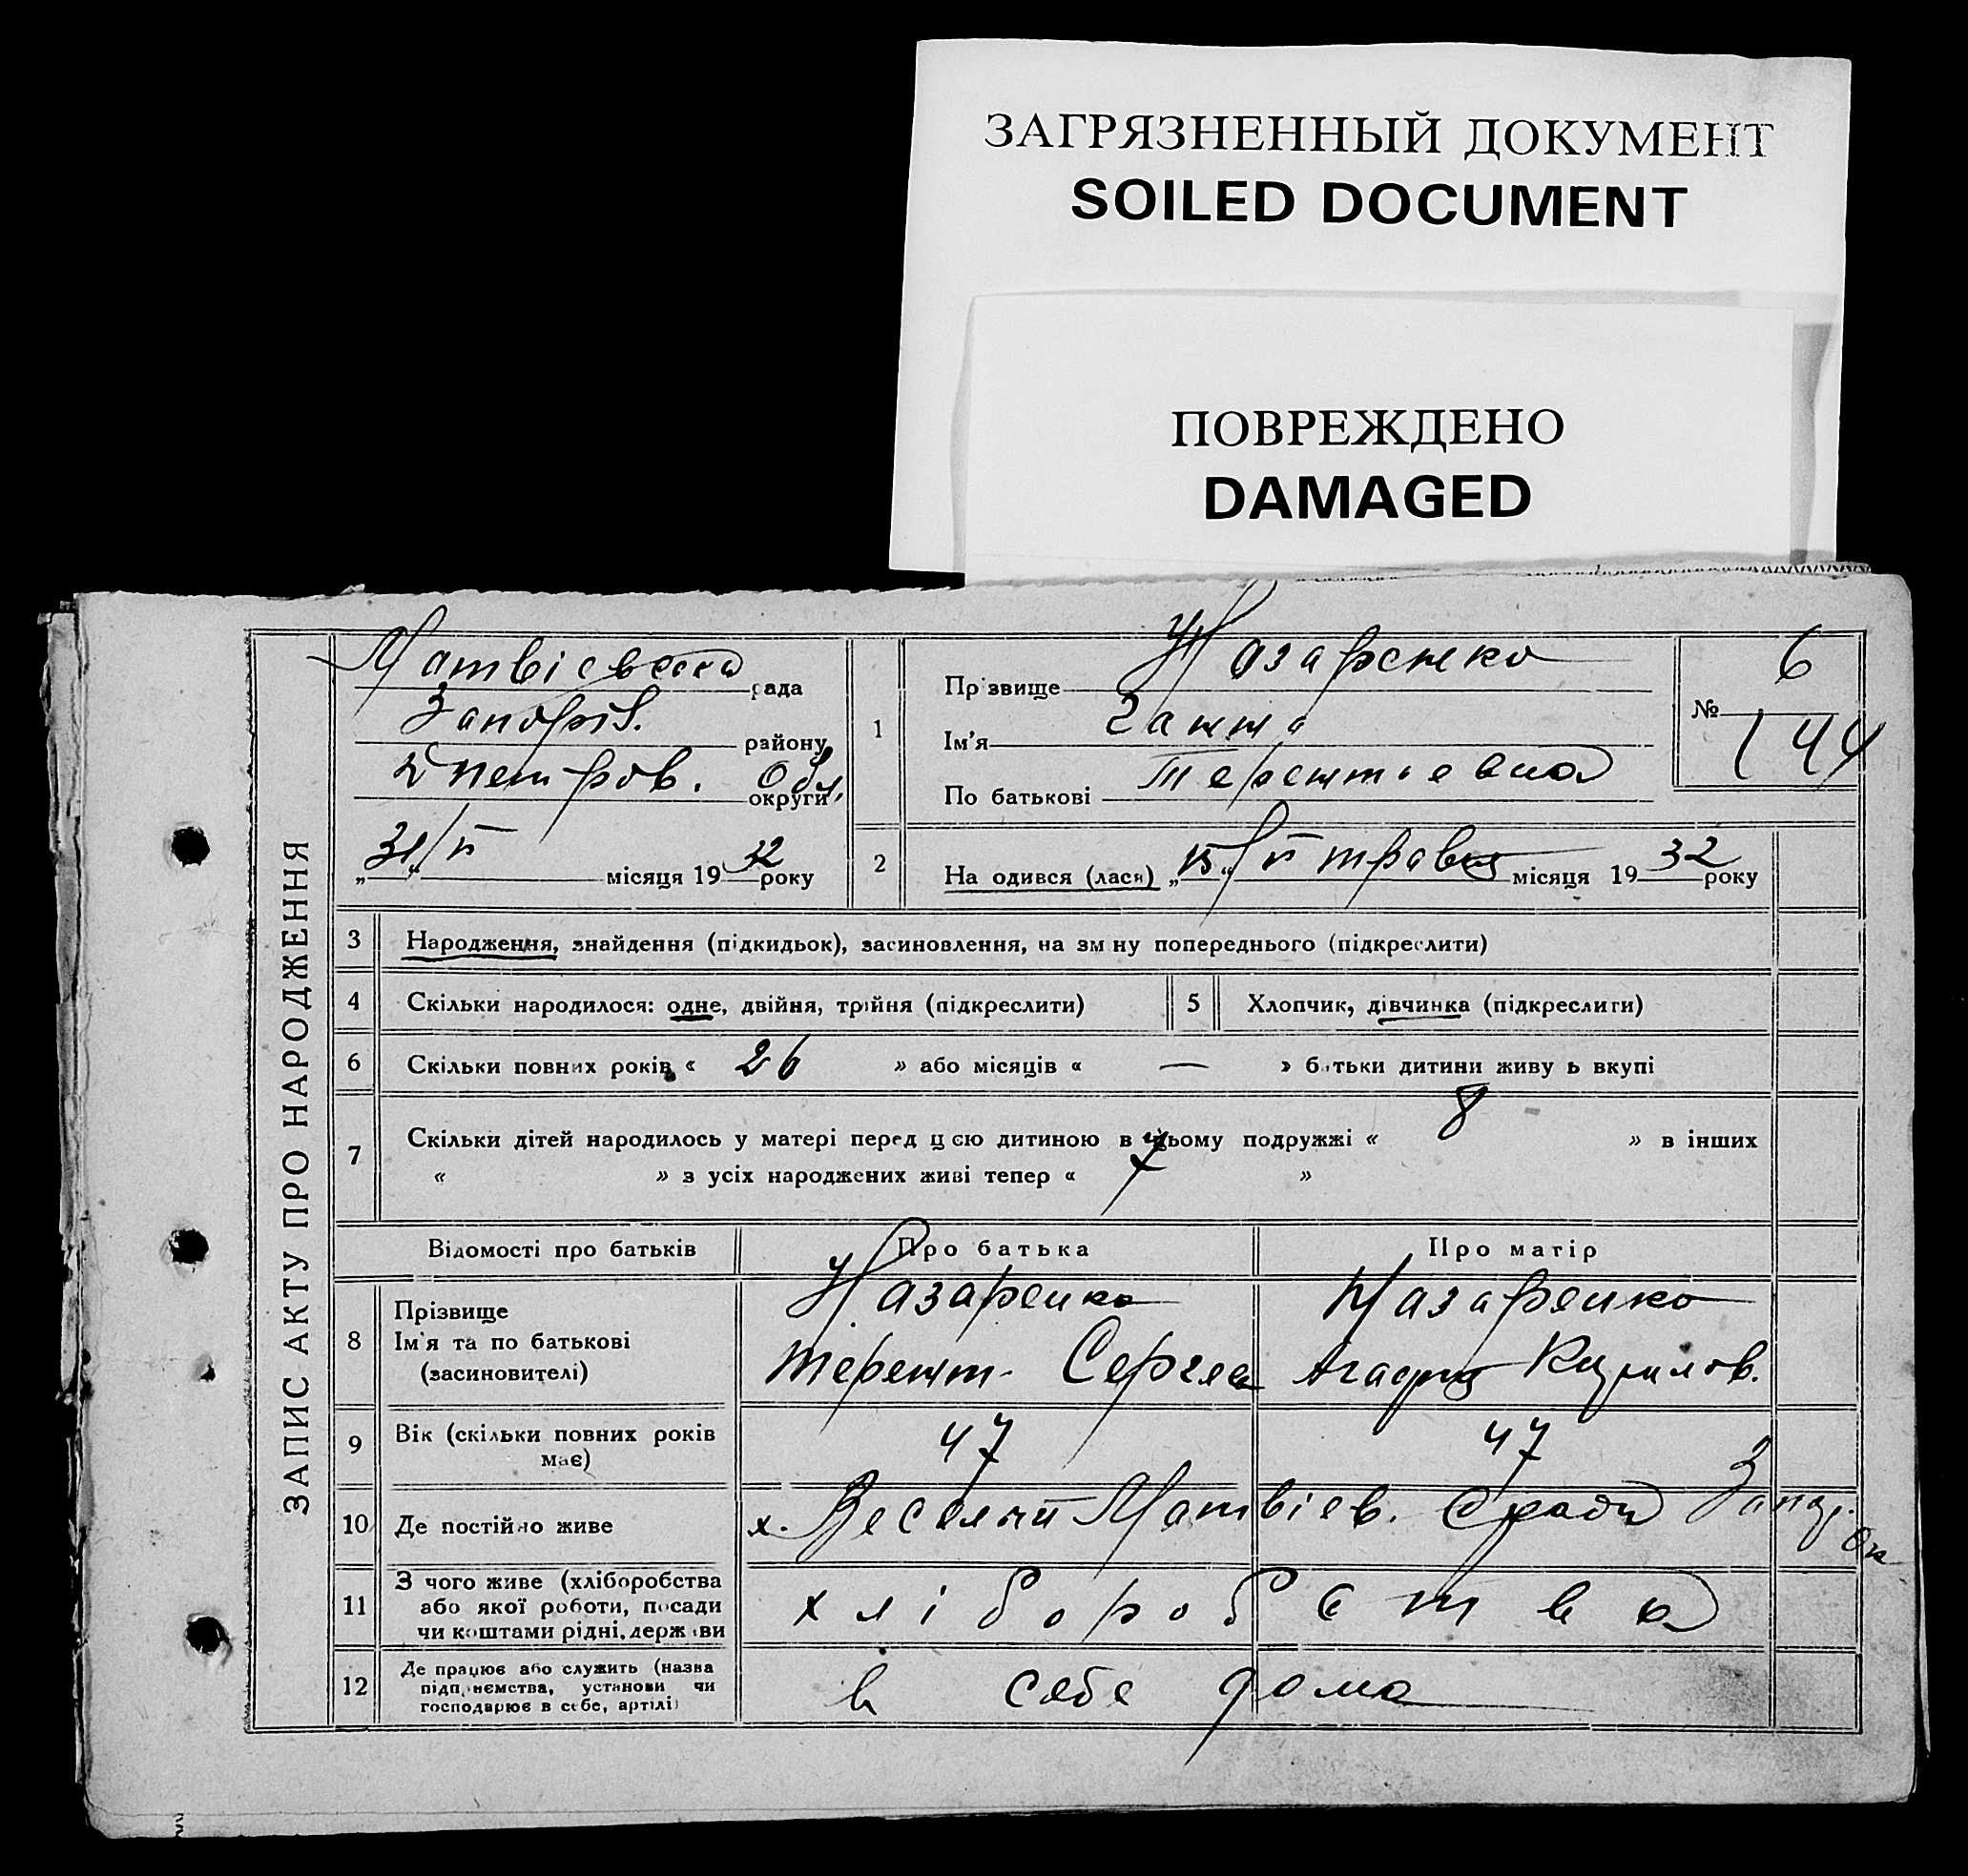 ЗАГРЯЗНЕННЫЙ ДОКУМЕНТ
SOILED DOCUMENT
ПОВРЕЖДЕНО
DAMAGED
ЗАПИС АКТУ ПРО НАРОДЖЕННЯ
Матвієвска рада
Запоріз. району
Днепров. Обл. округи
„31“ V місяця 1932 року
1
Прізвище Назаренко
Ім'я Ганна
По батькові Терентіевна
№ 6
144
2 На одився (лася) „15“ V травня місяця 1932 року
3 Народження, знайдення (підкидьок), засиновлення, на зм ну попереднього (підкреслити)
4 Скільки народилося: одне, двійня, трійня (підкреслити)
5 Хлопчик, дівчинка (підкреслити)
6 Скільки повних років « 26 » або місяців « — » батьки дитини живу ь вкупі
7 Скільки дітей народилось у матері перед цією дитиною в цьому подружжі « 8 » в інших
« » з усіх народжених живі тепер « 7 »
Відомості про батьків Про батька Про матір
8 Прізвище Назаренко Назаренко
Ім'я та по батькові
(засиновителі) Терент. Сергеев Агафія Кирилов.
9 Вік (скільки повних років має) 47 47
10 Де постійно живе х. Веселий Матвіев. с/ради Запор. Ок
11 З чого живе (хліборобства
або якої роботи, посади
чи коштами рідні, держави хліборобства
12 Де працює або служить (назва
підприємства, установи чи
господарює в себе, артілі) в себе дома